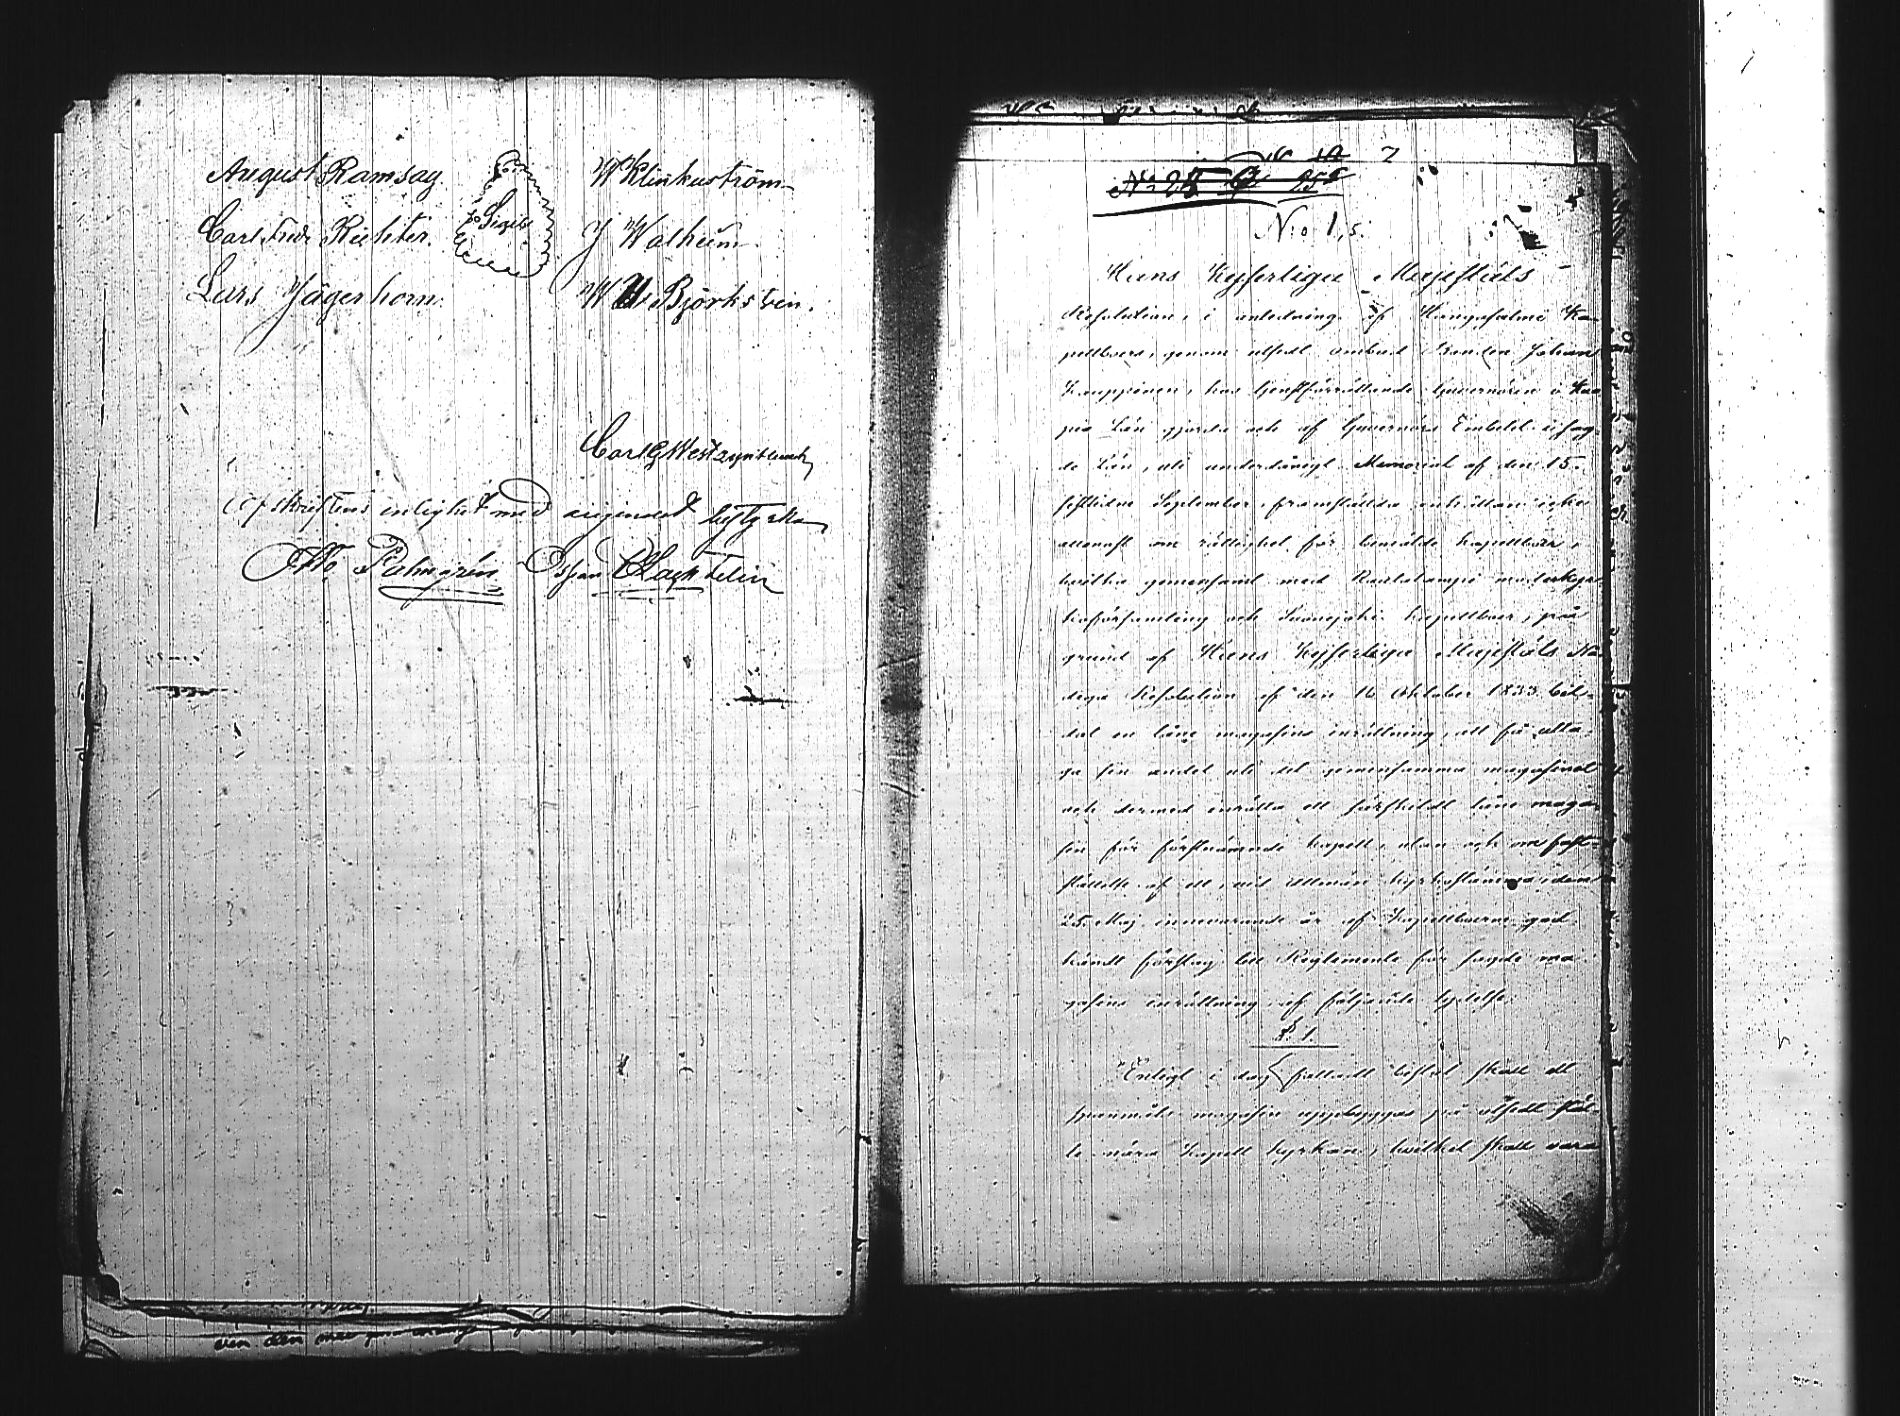 August Ramsay.
Carl Fredr Richter.
Lars Jägerhorn.
Sigill
W Klinkuström
J Walheim
W Björksten.
Carl G Westzynthius
Afskriftens enlighet med originalet bestyrka
Otto Palmgrén Ossian Clachtelin
No 1,5.
Hans Kejserliga Majestäts
Resolution, i anledning af Hangasalmi Ka-
pellboers, genom utsedt ombud Bonden Johan
Kauppinen, hos tjenstförrättande Guvernören i Kuo
pio Län gjorda och af Guvernörs Embetet i sag-
de Län, uti underdånigt Memorial af den 15.
sistledne September framställda anhållan icke
allenast om rättighet för bemälde kapellboer,
hvilka gemensamt med Rautalampi moderkyr
koförsamling och Suonejoki kapellboer, på
grund af Hans Kejserliga Majestäts Nå-
diga Resolution af den 16 Oktober 1833 bil-
dat en låne magasins inrättning, att få utta-
ga sin andel uti det gemensamma magasinet
och dermed inrätta ett särskildt låne maga-
sin för förstnämnde kapell, utan och om fast-
ställelse af ett, vid allmän kyrkostämma den
25. Maj innevarande år af Kapellboerne god-
kändt förslag till Reglemente för sagde ma-
gasins inrättning, af följande lydelse:
§. 1.
Enligt i dag fattadt beslut skall ett
spannmåls magasin uppbyggas på utsedt stäl-
le nära Kapell kyrkan, hvilket skall vara